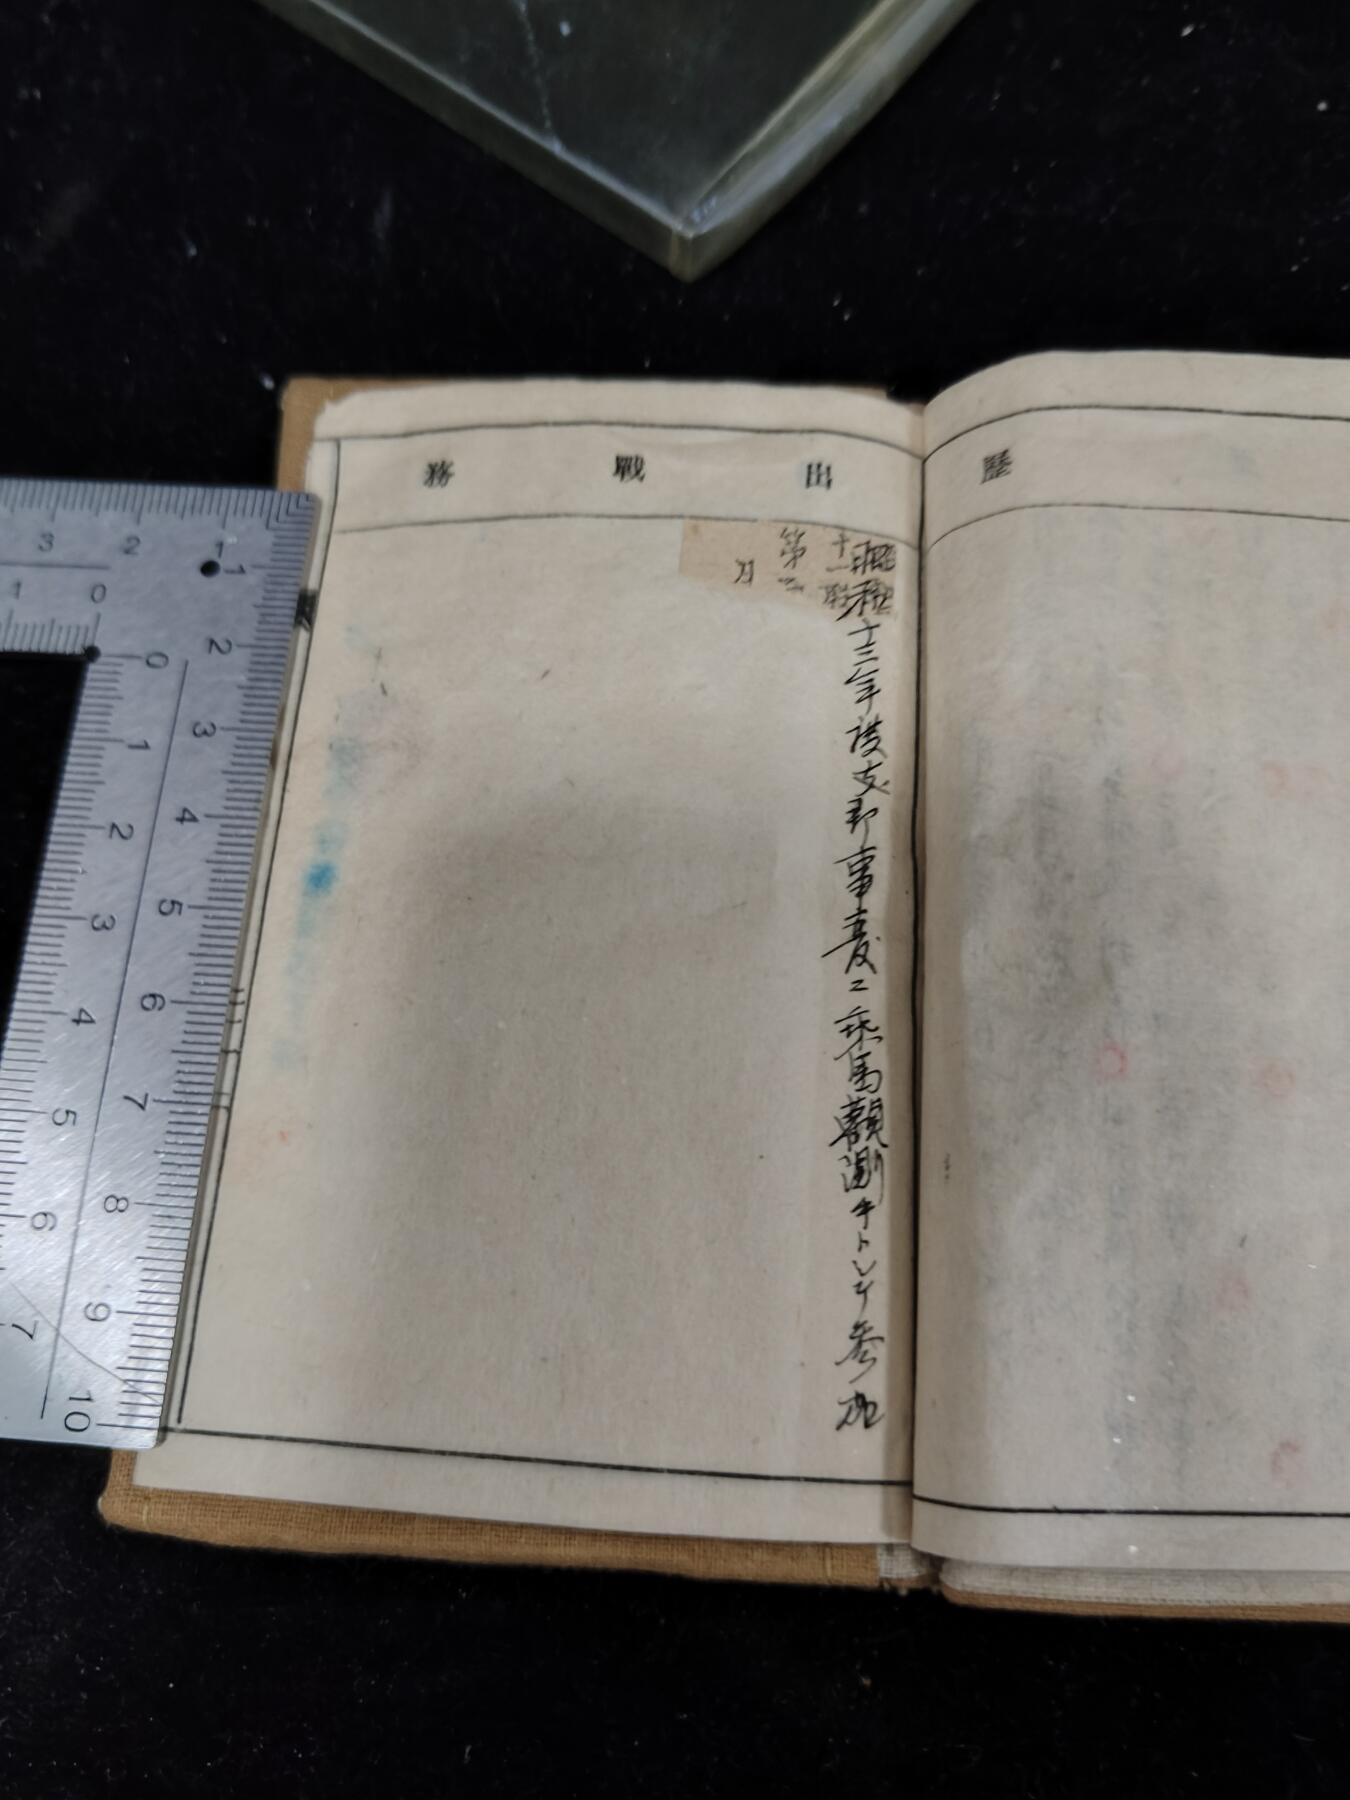 歴
出戰務
昭和十三年度支那事変ニ乘馬觀測手トシテ参加
十一
第一
月
3 2 1
1 0
1 2 3 4 5 6 7 8 9 10
0 1 2 3 4 5 6 7